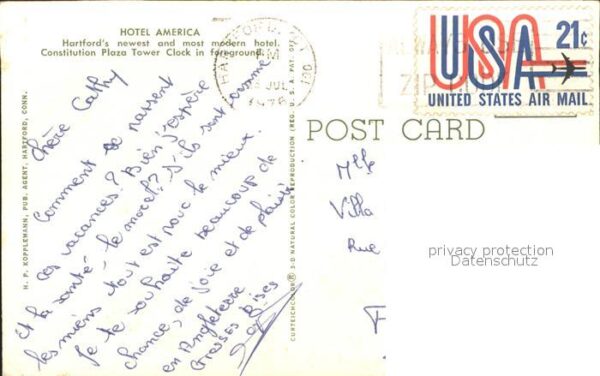 HOTEL AMERICA
Hartford's newest and most modern hotel.
Constitution Plaza Tower Clock in foreground.
Chère Cathy
Comment se passent
ces vacances? Bien j'espère
Et la santé, le moral? S'ils sont comme
les miens tout est pour le mieux.
Je te souhaite beaucoup de
chance, de joie et de plaisir
en Angleterre
Grosses Bises
H. P. KOPPLEMANN, PUB. AGENT, HARTFORD, CONN.
CURTEICHCOLOR® 3-D NATURAL COLOR REPRODUCTION (REG. U. S. A. PAT. OFF.)
HARTFORD
PM
JUL
ZIP
USA 21c
UNITED STATES AIR MAIL
POST CARD
Mlle
Villa
Rue
F
privacy protection
Datenschutz